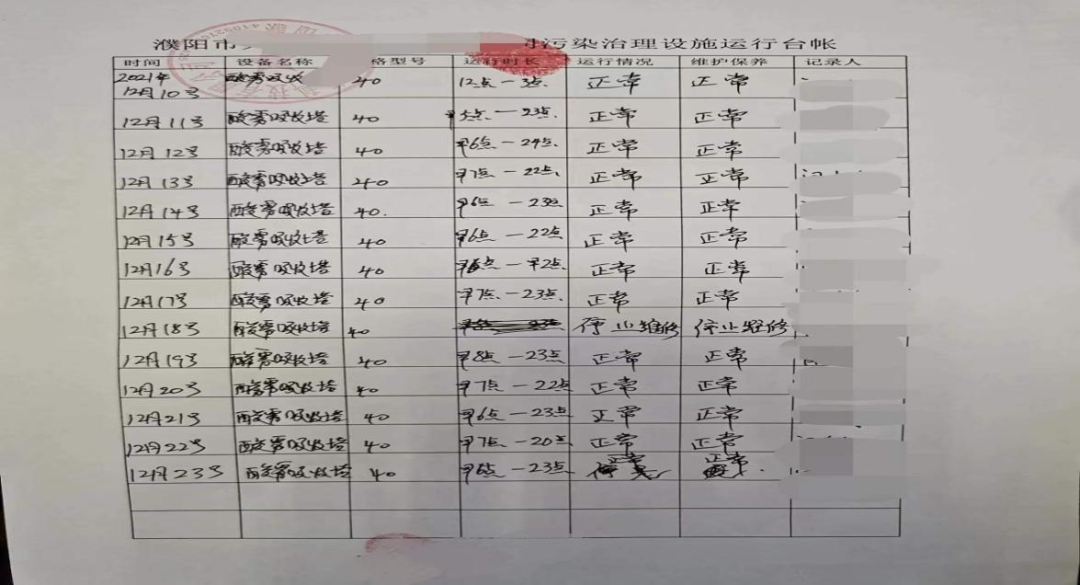 濮阳市 污染治理设施运行台帐
时间 设备名称 格型号 运行时长 运行情况 维护保养 记录人
2021年12月10号 酸雾吸收 40 12点-3点 正常 正常
12月11号 酸雾吸收塔 40 -23点 正常 正常
12月12号 酸雾吸收塔 40 早6点-24点 正常 正常
12月13号 酸雾吸收塔 40 早7点-22点 正常 正常
12月14号 酸雾吸收塔 40 早6点-23点 正常 正常
12月15号 酸雾吸收塔 40 早6点-22点 正常 正常
12月16号 酸雾吸收塔 40 正常 正常
12月17号 酸雾吸收塔 40 早7点-23点 正常 正常
12月18号 酸雾吸收塔 40 停止维修 停止维修
12月19号 酸雾吸收塔 40 早8点-23点 正常 正常
12月20号 酸雾吸收塔 40 早7点-22点 正常 正常
12月21号 酸雾吸收塔 40 早6点-23点 正常 正常
12月22号 酸雾吸收塔 40 早7点-20点 正常 正常
12月23号 酸雾吸收塔 40 早6点-23点 正常 正常